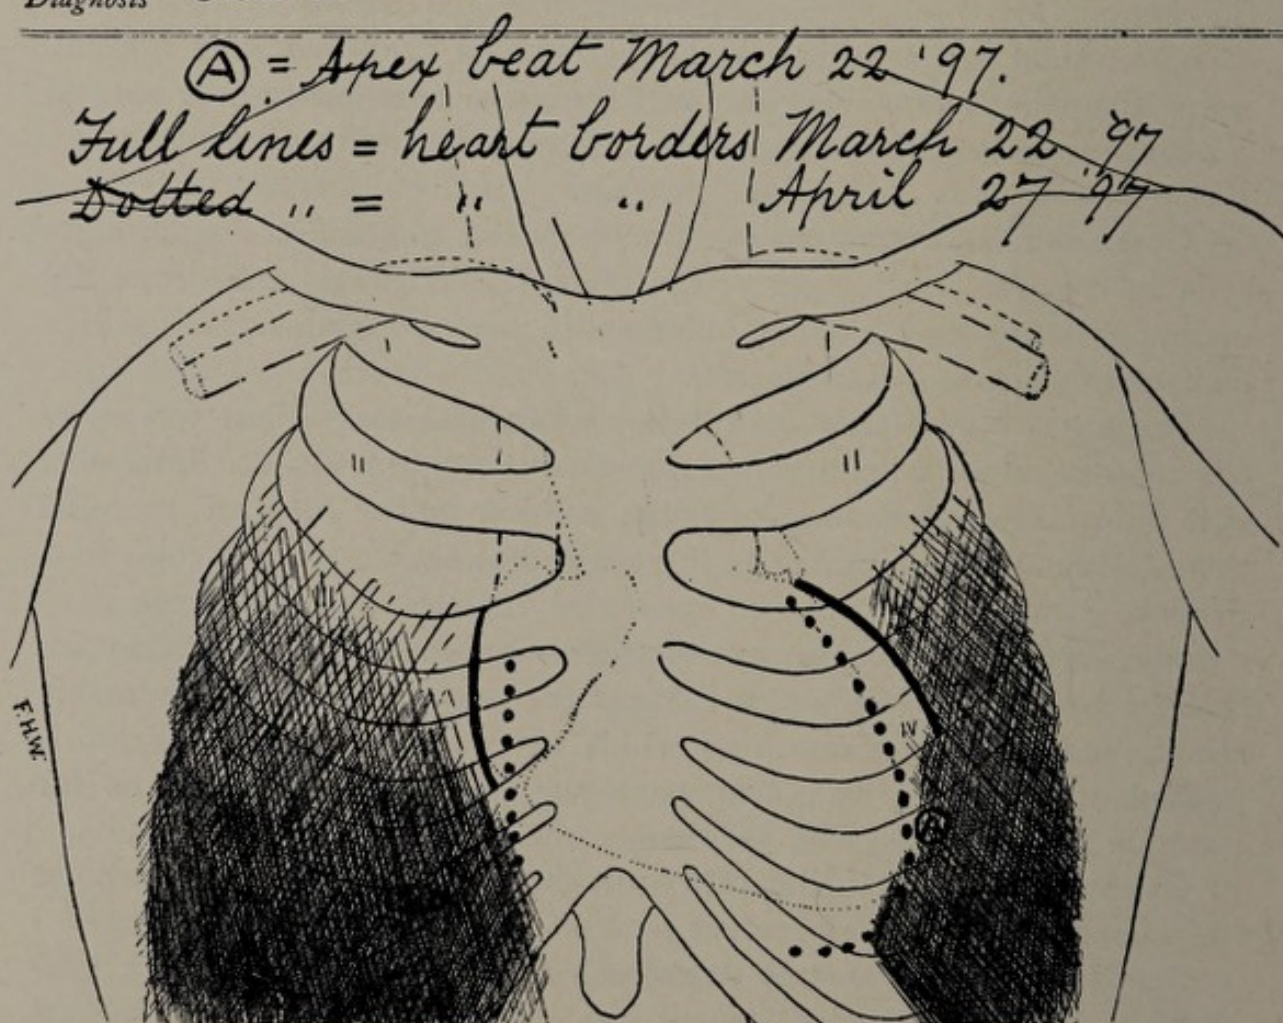 Diagnosis
Ⓐ = Apex beat March 22 '97.
Full lines = heart borders March 22 '97
Dotted " = " " April 27 '97
I I
II II
IV
Ⓐ
F.H.W.